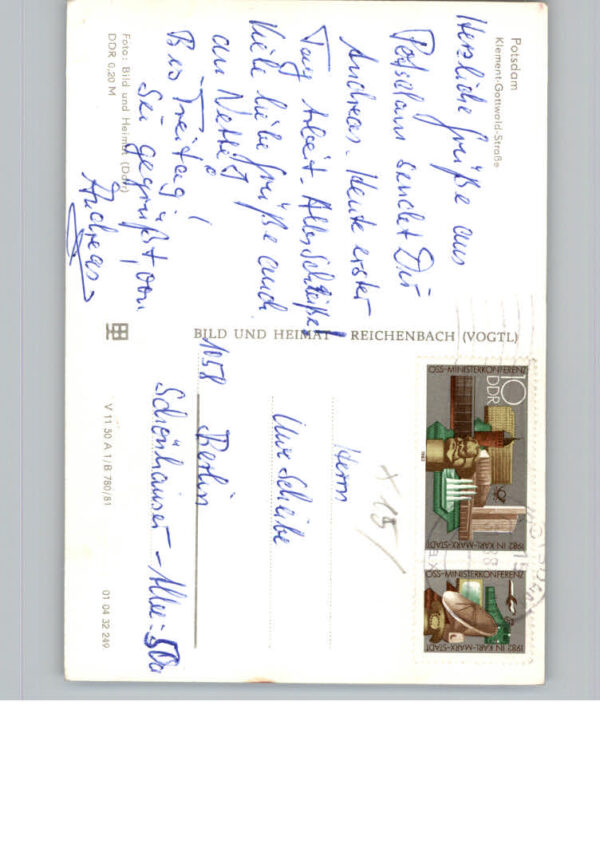 Potsdam
Klement-Gottwald-Straße
Herzliche Grüße aus
Potsdam sendet Dir
Andreas. Heute erster
Tag Arbeit. Alles Scheiße!
Viele liebe Grüße auch
an
Bis Freitag!
Sei gegrüßt, von
Andreas
Foto: Bild und Heimat (Darr)
DDR 0,20 M
BILD UND HEIMAT REICHENBACH (VOGTL)
V 11 50 A 1/B 780/81
01 04 32 249
OSS-MINISTERKONFERENZ
10
DDR
1982 IN KARL-MARX-STADT
OSS-MINISTERKONFERENZ
1982 IN KARL-MARX-STADT
x 15/
Herrn
Uwe Scheibe
1058 Berlin
Schönhauser-Allee-50a